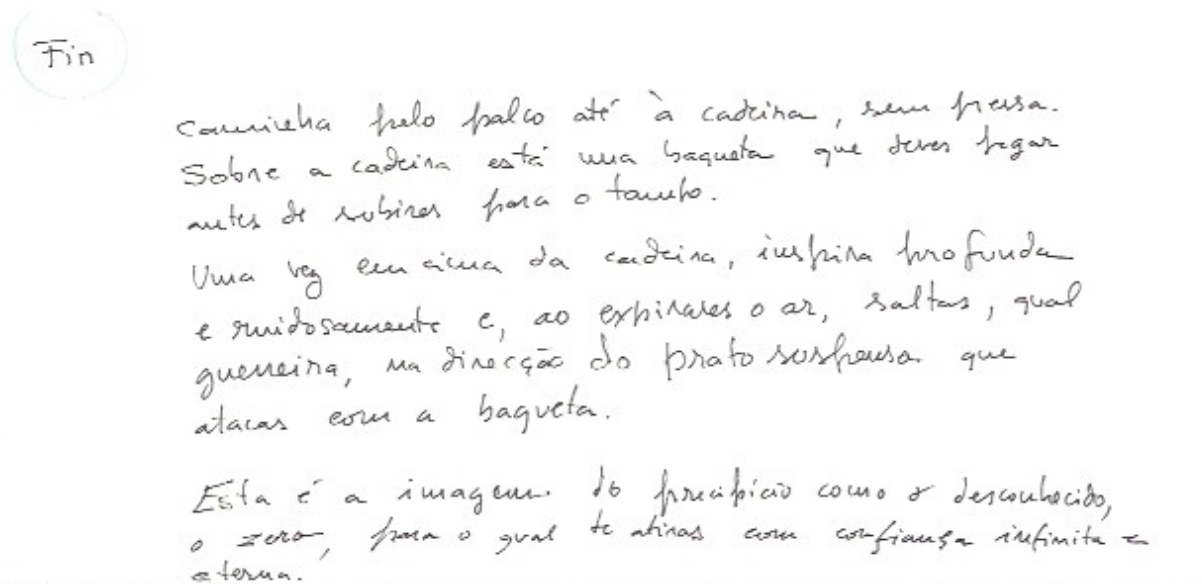 Fin
Caminha pelo palco até à cadeira, sem pressa.
Sobre a cadeira está uma baqueta que deves pegar
antes de subires para o tampo.
Uma vez em cima da cadeira, inspira profunda
e ruidosamente e, ao expirares o ar, saltas, qual
guerreira, na direcção do prato suspenso que
atacas com a baqueta.
Esta é a imagem do precipício como o desconhecido,
o zero, para o qual te atiras com confiança infinita e
eterna.